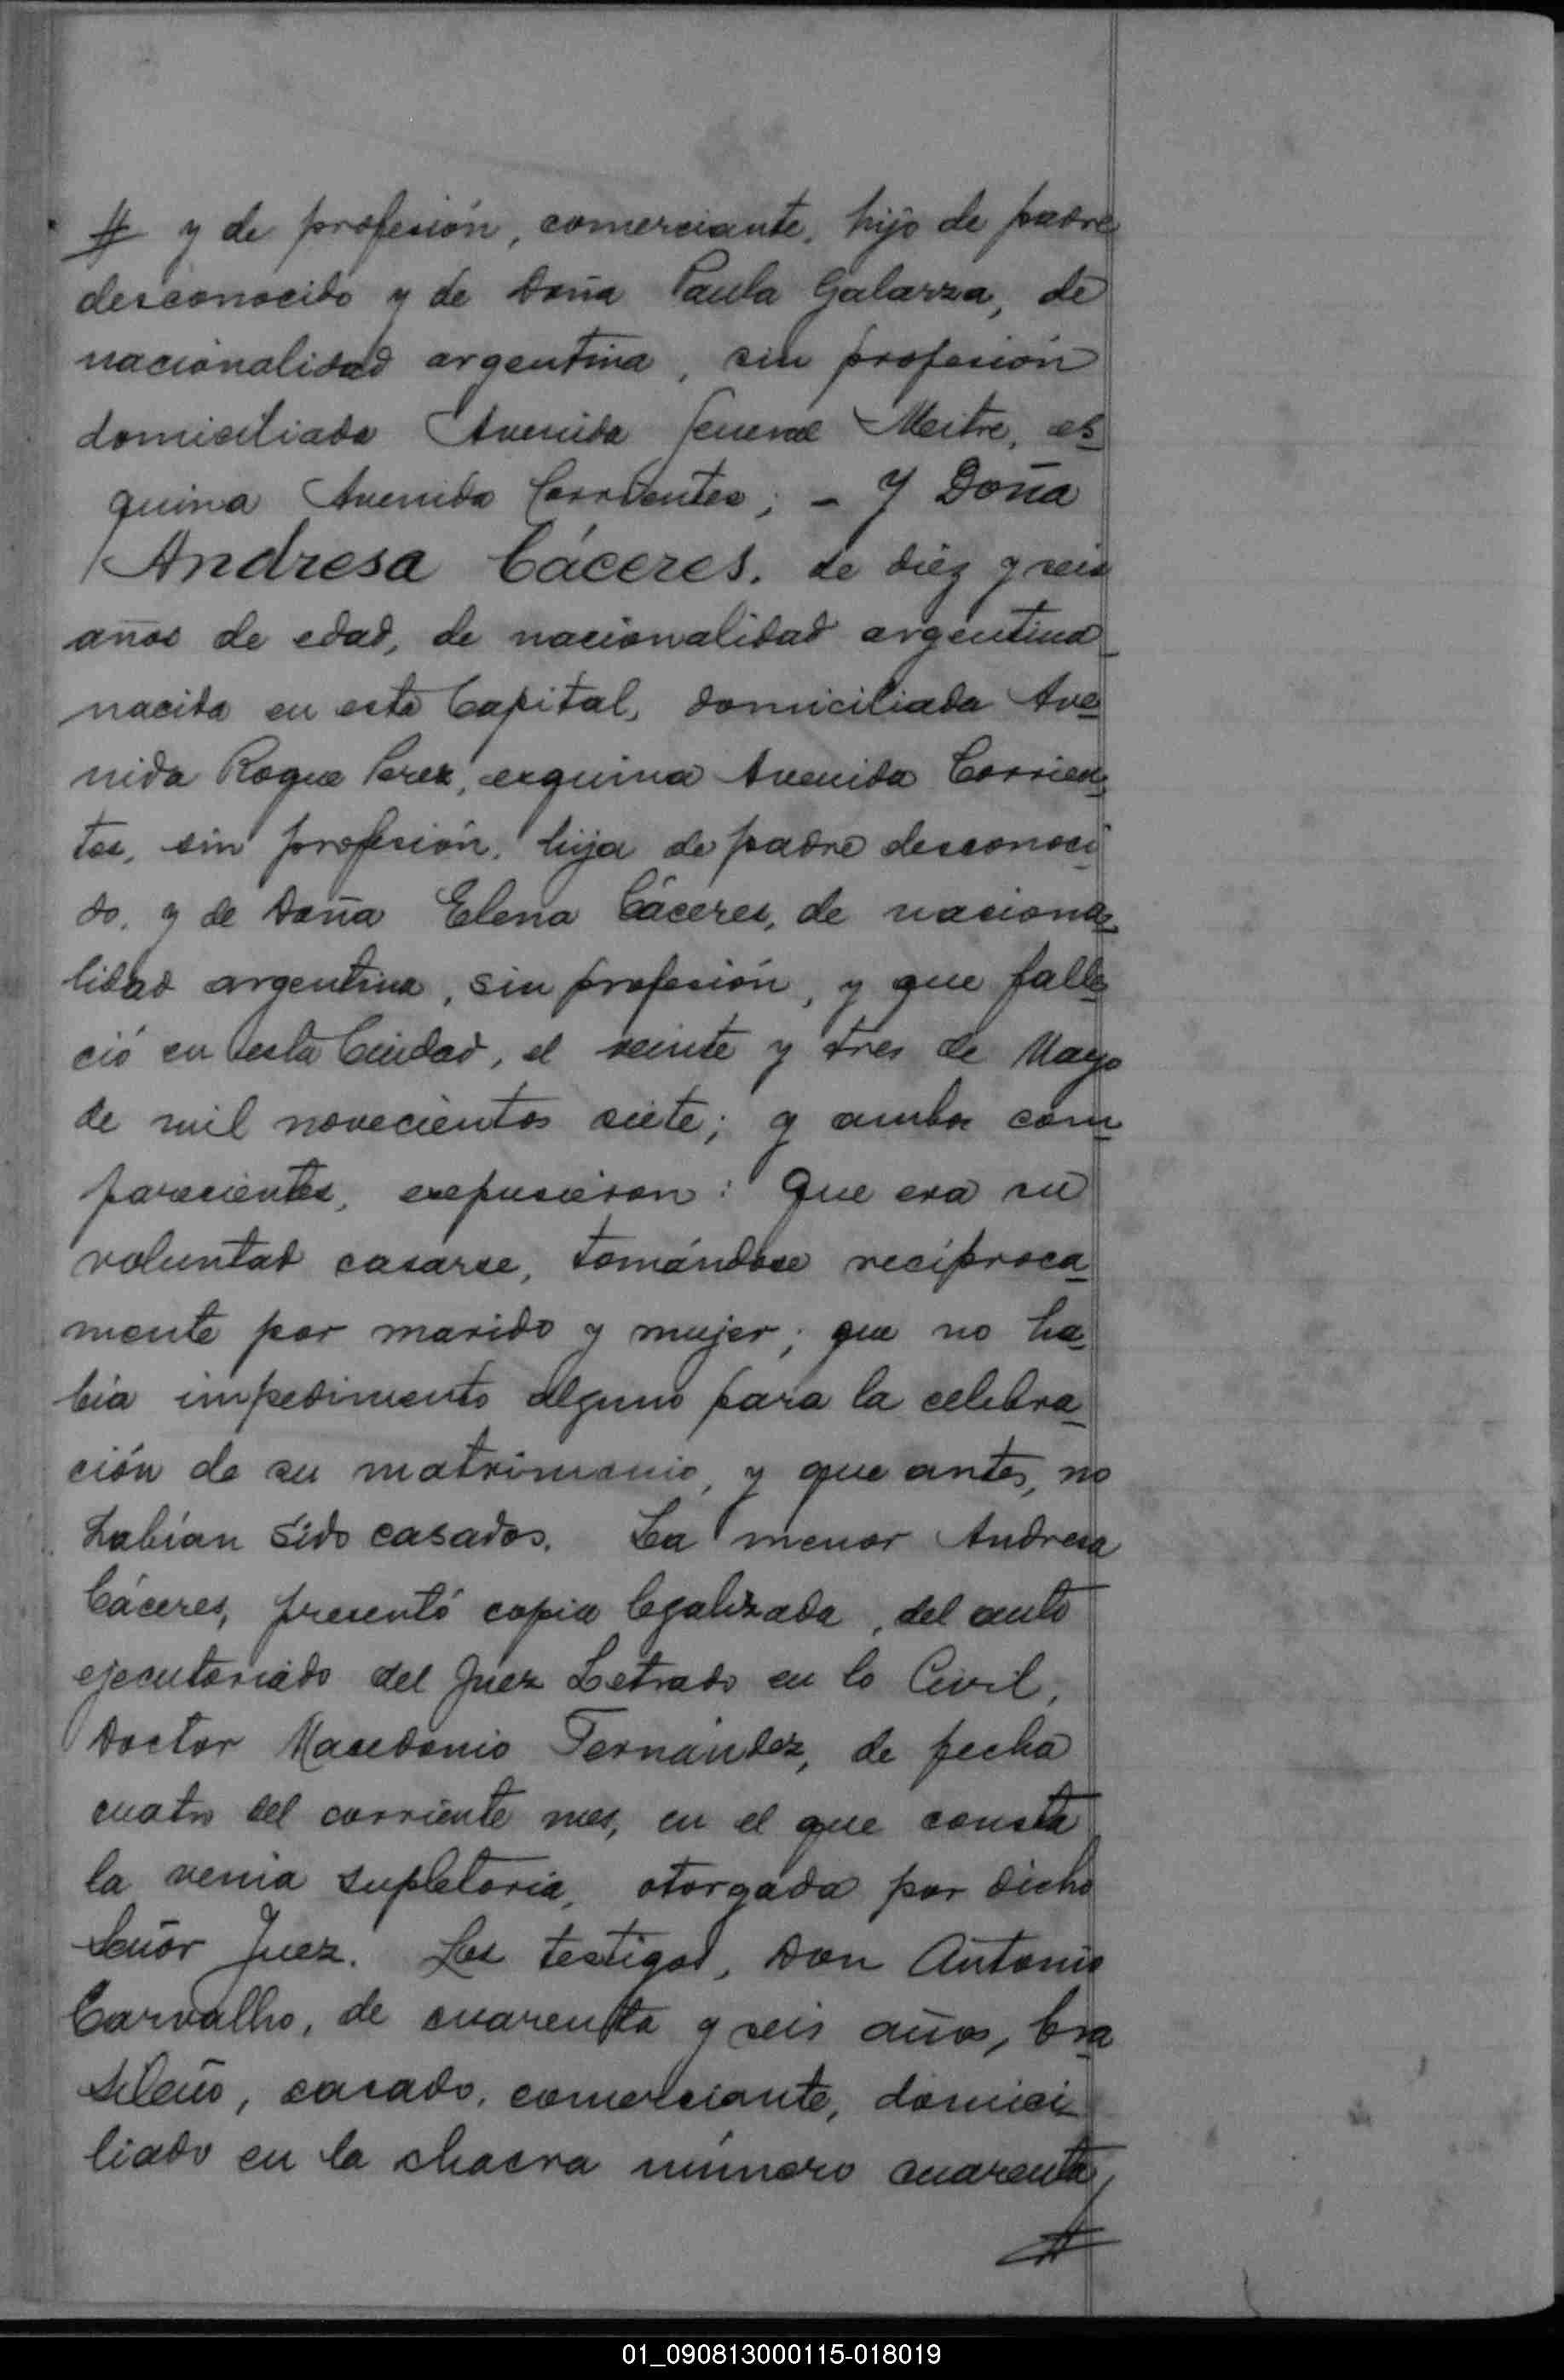 # y de profesión, comerciante, hijo de padre
desconocido y de Doña Paula Galarza, de
nacionalidad argentina, sin profesión
domiciliada Avenida General Mitre, es
quina Avenida Corrientes; - Y Doña
Andresa Cáceres, de diéz y seis
años de edad, de nacionalidad argentina
nacida en esta Capital, domiciliada Ave
nida Roque Perez, esquina Avenida Corrien
tes, sin profesión, hija de padre desconoci
do, y de Doña Elena Cáceres, de naciona
lidad argentina, sin profesión, y que falle
ció en esta Ciudad, el veinte y tres de Mayo
de mil novecientos siete; y ambos com
parecientes, expusieron: Que era su
voluntad casarse, tomándose recíproca
mente por marido y mujer; que no ha
bía impedimento alguno para la celebra
ción de su matrimonio, y que antes, no
habían sido casados. La menor Andresa
Cáceres, presentó copia legalizada, del auto
ejecutoriado del Juez Letrado en lo Civil,
Doctor Macedonio Fernández, de fecha
cuatro del corriente mes, en el que consta
la venia supletoria, otorgada por dicho
Señor Juez. Los testigos, Don Antonio
Carvalho, de cuarenta y seis años, bra
sileño, casado, comerciante, domici
liado en la chacra número cuarenta,
#
01_090813000115-018019